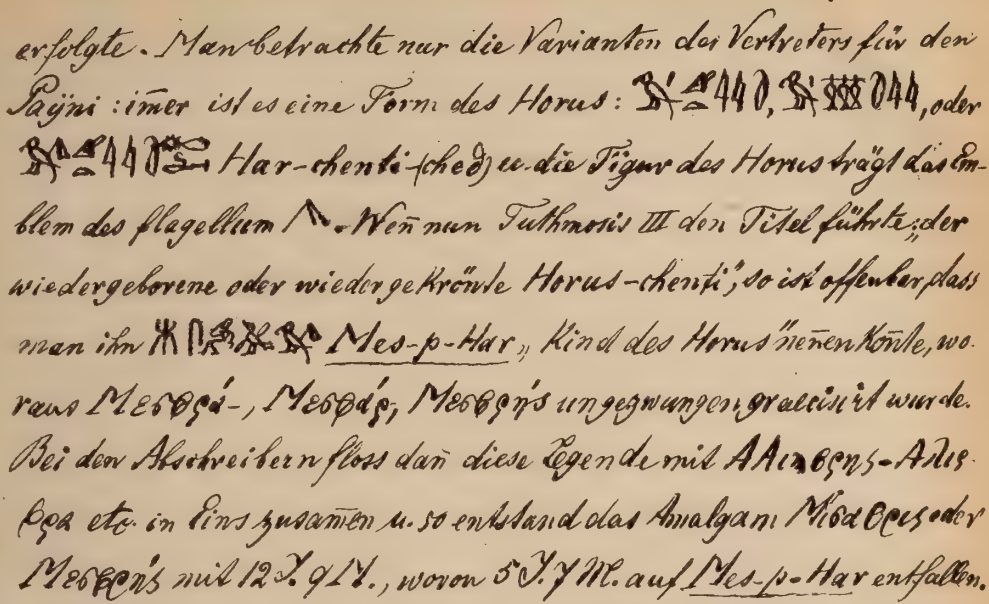 erfolgte. Man betrachte nur die Varianten des Vertreters für den
Payni: im̄er ist es eine Form des Horus: , oder
Har-chenti-(ched) u. die Figur des Horus trägt das Em-
blem des flagellum . Wen̄ nun Tuthmosis III den Titel führte: „der
wiedergeborene oder wiedergekrönte Horus-chenti“, so ist offenbar, dass
man ihn Mes-p-Har „Kind des Horus“ nen̄en kon̄te, wo-
raus Μεσφρά-, Μεσφάρ, Μεσφρής ungezwungen graecisirt wurde.
Bei den Abschreibern floss dan̄ diese Legende mit
φρα etc. in Eins zusam̄en u. so entstand das Amalgam Μισαφρις oder
Μεσφρής mit 12 J. 9 M., wovon 5 J. 7 M. auf Mes-p-Har entfallen.